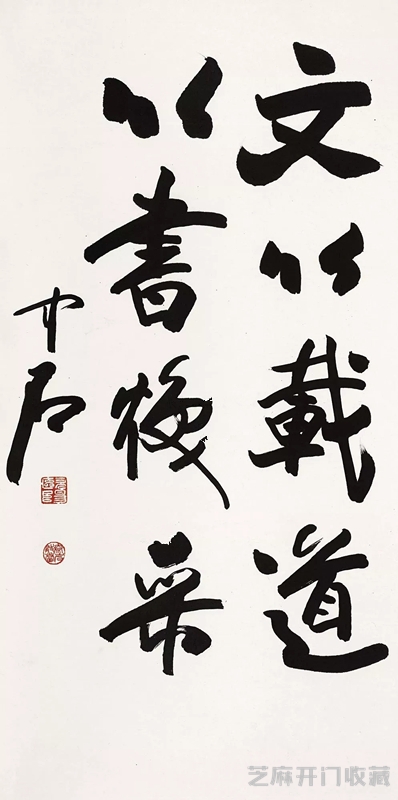 文以載道
以書焕采
中石
芝麻开门收藏